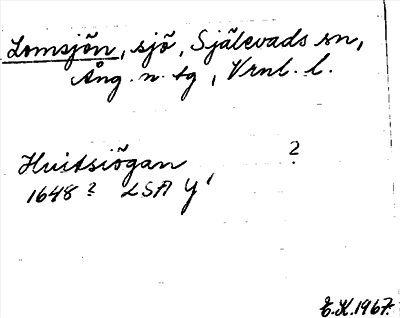 Lomsjön, sjö, Själevads sn,
Ång. n. tg, Vrnl. l.
Hvitsiögan ?
1648? LSA Y'
E.K. 1967.